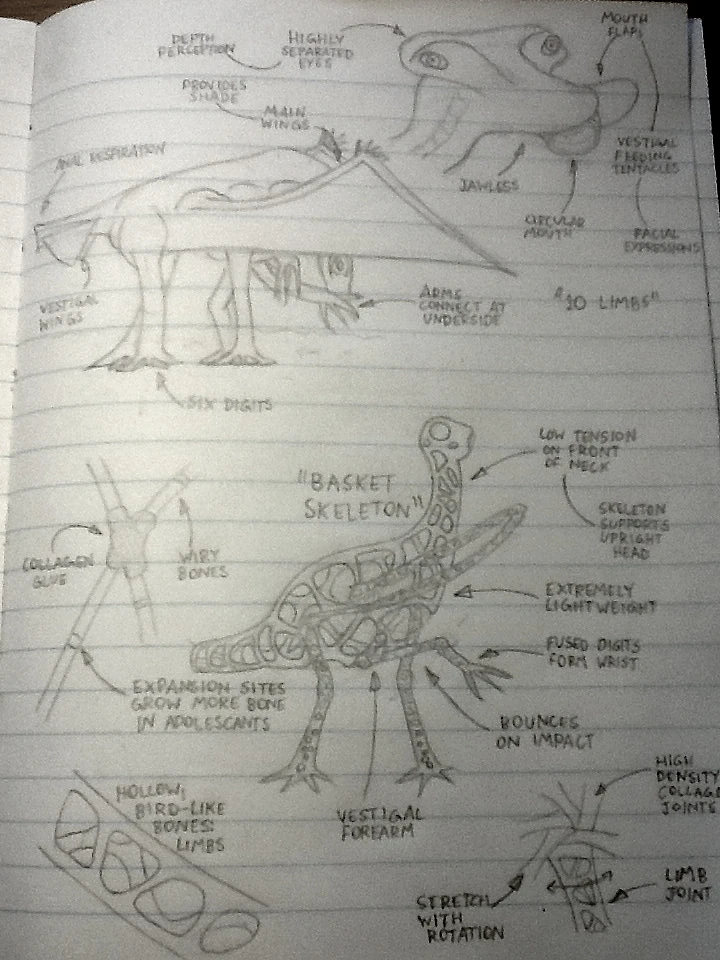 DEPTH
PERCEPTION
HIGHLY
SEPARATED
EYES
MOUTH
FLAPS
PROVIDES
SHADE
MAIN
WINGS
ANAL RESPIRATION
VESTIGAL
FEEDING
TENTACLES
JAWLESS
CIRCULAR
MOUTH
FACIAL
EXPRESSIONS
VESTIGAL
WINGS
ARMS
CONNECT AT
UNDERSIDE
"10 LIMBS"
SIX DIGITS
"BASKET
SKELETON"
LOW TENSION
ON FRONT
OF NECK
SKELETON
SUPPORTS
UPRIGHT
HEAD
COLLAGEN
GLUE
WIRY
BONES
EXTREMELY
LIGHTWEIGHT
FUSED DIGITS
FORM WRIST
EXPANSION SITES
GROW MORE BONE
IN ADOLESCANTS
BOUNCES
ON IMPACT
HOLLOW,
BIRD-LIKE
BONES:
LIMBS
VESTIGAL
FOREARM
HIGH
DENSITY
COLLAGE
JOINTS
STRETCH
WITH
ROTATION
LIMB
JOINT